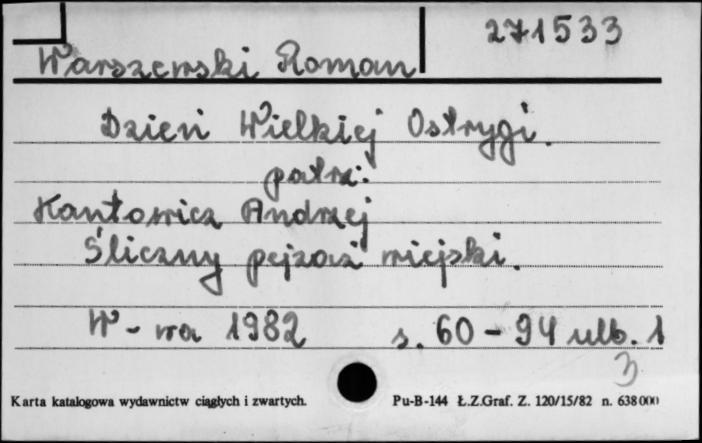 271533
Warszewski Roman
Dzień Wielkiej Ostrygi.
patrz:
Kantowicz Andrzej
Śliczny pejzaż wiejski.
W-wa 1982 s. 60-94 ulb. 1
3
Karta katalogowa wydawnictw ciągłych i zwartych. Pu-B-144 Ł.Z.Graf. Z. 120/15/82 n. 638000